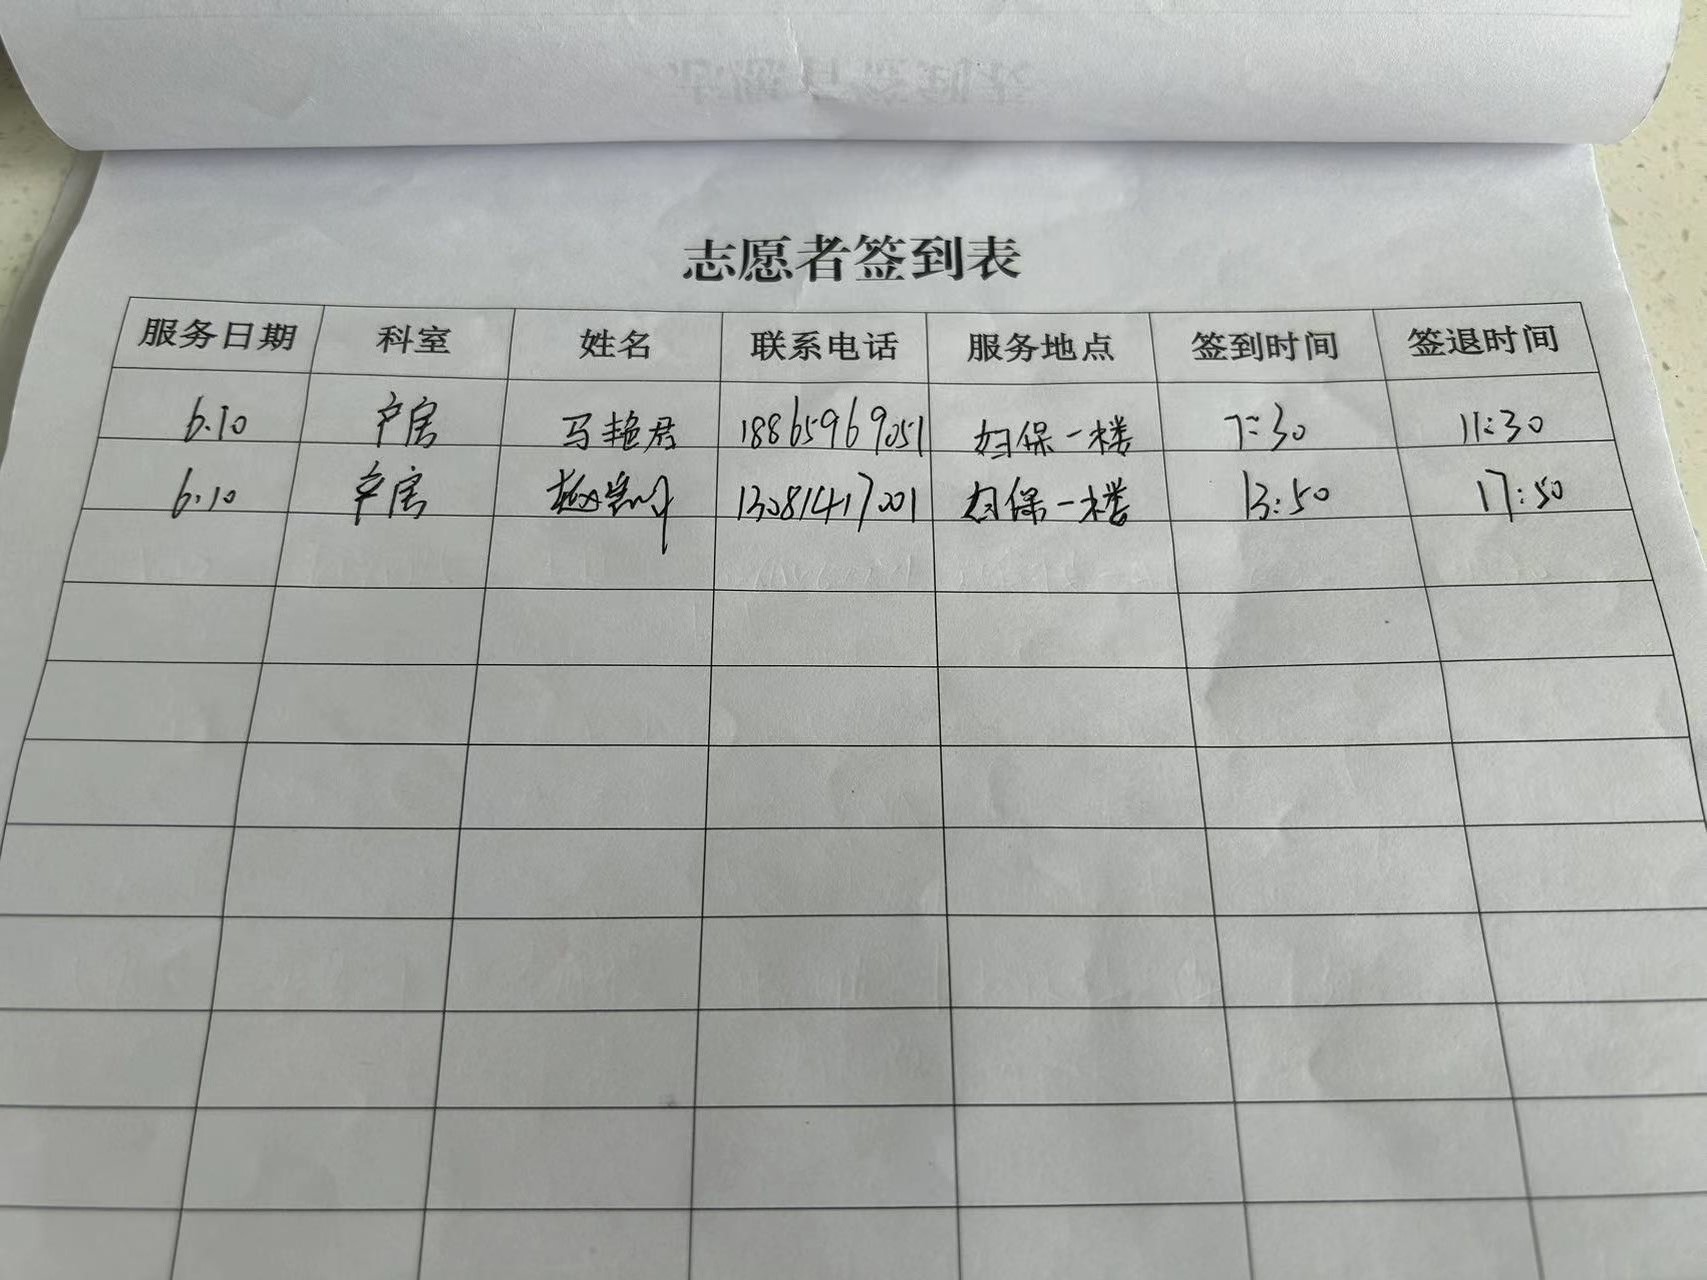 志愿者签到表
服务日期 科室 姓名 联系电话 服务地点 签到时间 签退时间
6.10 产房 马艳君 18865969051 妇保一楼 7:30 11:30
6.10 产房 13081417001 妇保一楼 13:50 17:50